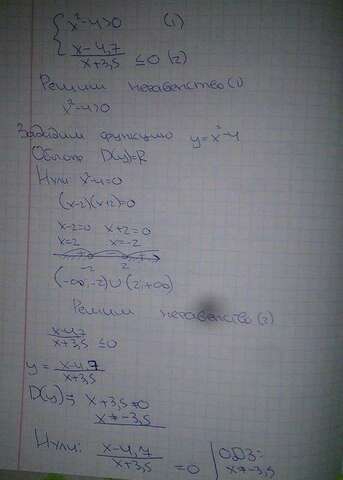 { x²-4>0 (1)
x-4,7 / x+3,5 ≤0 (2)
Решим неравенство (1)
x²-4>0
Зададим функцию y=x²-4
Область D(y)=R
Нули: x²-4=0
(x-2)(x+2)=0
x-2=0 x+2=0
x=2 x=-2
-2 2
(-∞;-2)∪(2;+∞)
Решим неравенство (2)
x-4,7 / x+3,5 ≤0
y= x-4,7 / x+3,5
D(y)= x+3,5≠0
x≠-3,5
Нули: x-4,7 / x+3,5 =0 | ОДЗ:
x≠-3,5